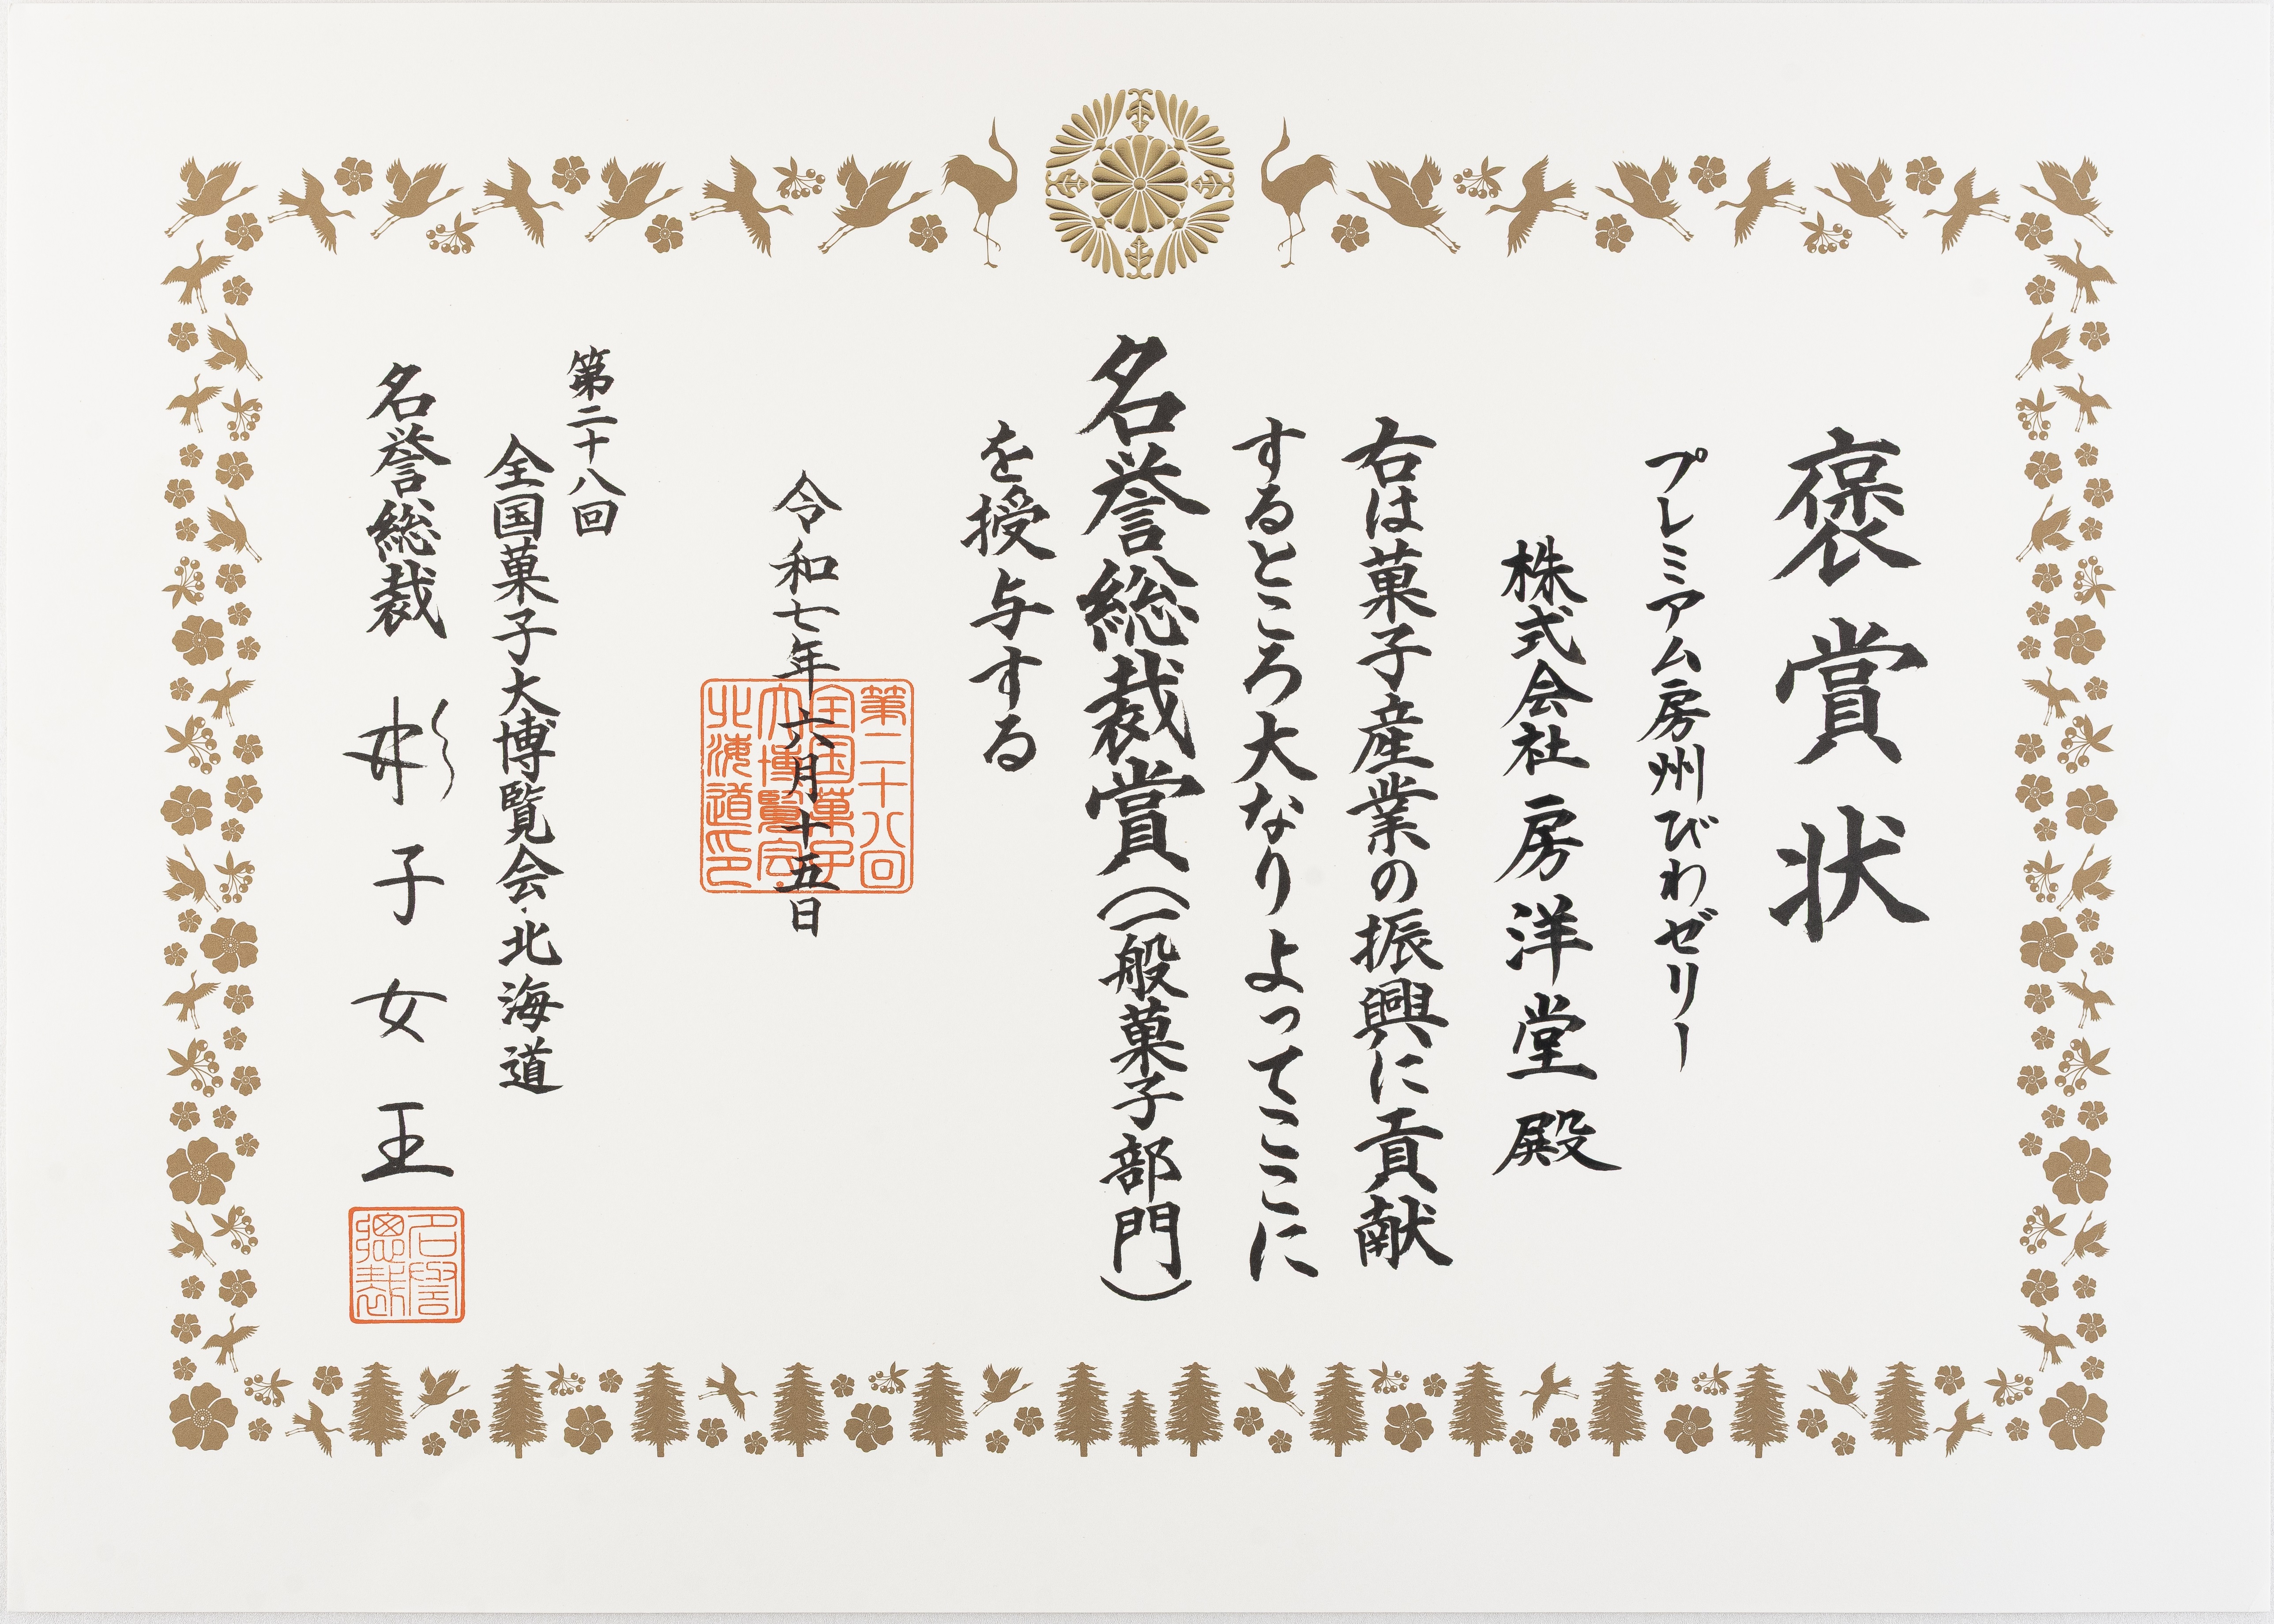 褒賞状
プレミアム房州びわゼリー
株式会社 房洋堂 殿
右は菓子産業の振興に貢献
するところ大なり よってここに
名誉総裁賞(一般菓子部門)
を授与する
令和七年六月十五日
第二十八回
全国菓子大博覧会・北海道
名誉総裁 彬子女王
第二十八回
全国菓子
大博覧会
北海道印
名誉
總裁